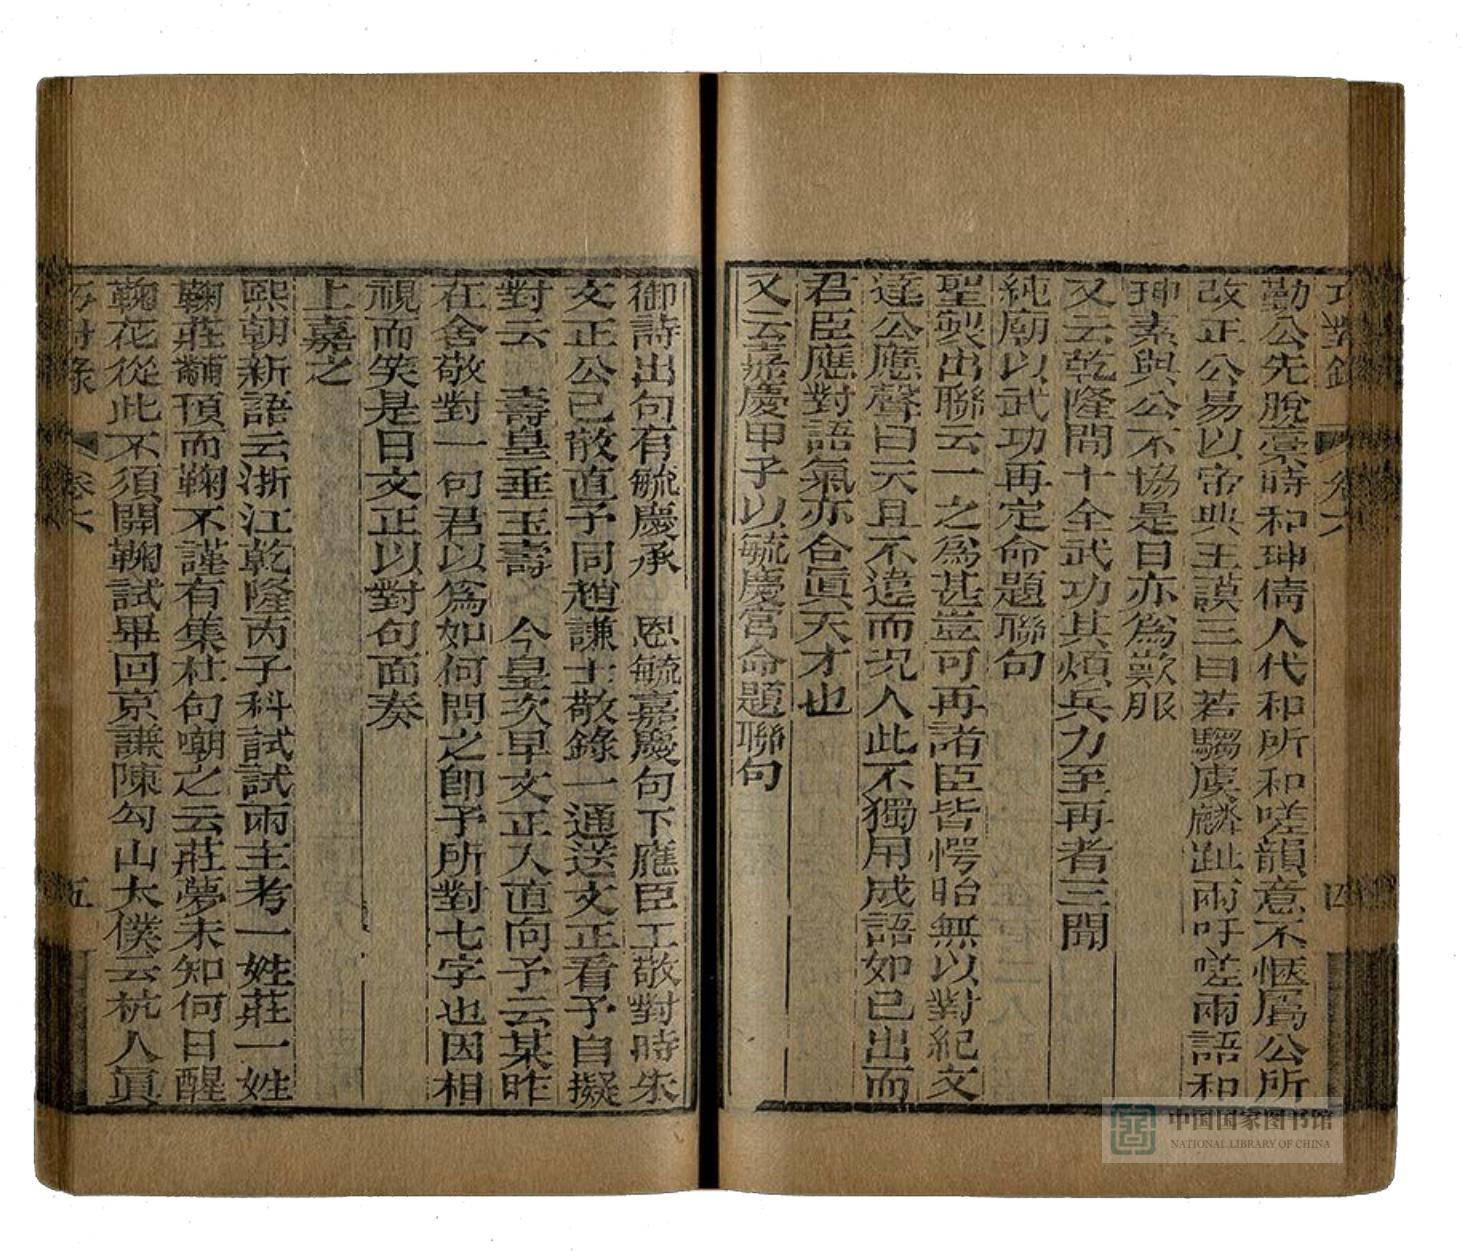 巧對錄 卷六 四
勤公先脫藁時和珅倩人代和所和嗟韻意不愜屬公所
改正公易以帝典王謨三曰若騶虞麟趾兩吁嗟兩語和
珅素與公不協是日亦爲歎服
又云乾隆間十全武功其煩兵力至再者三聞
純廟以武功再定命題聯句
聖製出聯云一之爲甚豈可再諸臣皆愕眙無以對紀文
達公應聲曰天且不違而况人此不獨用成語如已出而
君臣應對語氣亦合眞天才也
又云嘉慶甲子以毓慶宮命題聯句
御詩出句有毓慶承 恩毓嘉慶句下應臣工敬對時朱
文正公已散直予同趙謙士敬錄一通送文正看予自擬
對云 壽皇垂玉壽 今皇次早文正入直向予云某昨
在舍敬對一句君以爲如何問之卽予所對七字也因相
視而笑是日文正以對句面奏
上嘉之
熙朝新語云浙江乾隆丙子科試試兩主考一姓莊一姓
鞠莊顢頇而鞠不謹有集杜句嘲之云莊夢未知何日醒
鞠花從此不須開鞠試畢回京謙陳勾山太僕云杭人眞
巧對錄 卷六 五
中国国家图书馆
NATIONAL LIBRARY OF CHINA